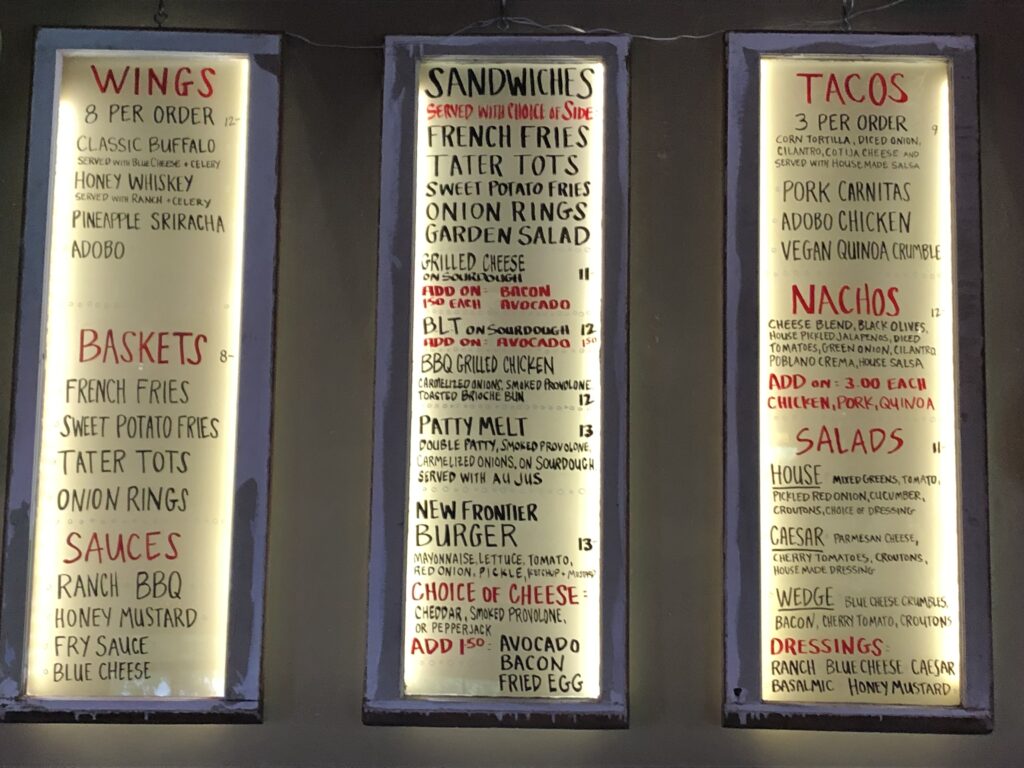 WINGS
8 PER ORDER 12-
CLASSIC BUFFALO
SERVED WITH BLUE CHEESE + CELERY
HONEY WHISKEY
SERVED WITH RANCH + CELERY
PINEAPPLE SRIRACHA
ADOBO
BASKETS 8-
FRENCH FRIES
SWEET POTATO FRIES
TATER TOTS
ONION RINGS
SAUCES
RANCH BBQ
HONEY MUSTARD
FRY SAUCE
BLUE CHEESE
SANDWICHES
SERVED WITH CHOICE OF SIDE
FRENCH FRIES
TATER TOTS
SWEET POTATO FRIES
ONION RINGS
GARDEN SALAD
GRILLED CHEESE
ON SOURDOUGH 11-
ADD ON: BACON
1.50 EACH: AVOCADO
BLT ON SOURDOUGH 12
ADD ON: AVOCADO 1.50
BBQ GRILLED CHICKEN
CARMELIZED ONIONS, SMOKED PROVOLONE
TOASTED BRIOCHE BUN 12
PATTY MELT 13
DOUBLE PATTY, SMOKED PROVOLONE,
CARMELIZED ONIONS, ON SOURDOUGH
SERVED WITH AU JUS
NEW FRONTIER
BURGER 13-
MAYONNAISE, LETTUCE, TOMATO,
RED ONION, PICKLE, KETCHUP + MUSTARD
CHOICE OF CHEESE:
CHEDDAR, SMOKED PROVOLONE,
OR PEPPERJACK
ADD 1.50: AVOCADO
BACON
FRIED EGG
TACOS
3 PER ORDER 9
CORN TORTILLA, DICED ONION,
CILANTRO, COTIJA CHEESE AND
SERVED WITH HOUSE MADE SALSA
PORK CARNITAS
ADOBO CHICKEN
VEGAN QUINOA CRUMBLE
NACHOS 12
CHEESE BLEND, BLACK OLIVES,
HOUSE PICKLED JALAPENOS, DICED
TOMATOES, GREEN ONION, CILANTRO
POBLANO CREMA, HOUSE SALSA
ADD ON: 3.00 EACH
CHICKEN, PORK, QUINOA
SALADS 11-
HOUSE MIXED GREENS, TOMATO,
PICKLED RED ONION, CUCUMBER,
CROUTONS, CHOICE OF DRESSING
CAESAR PARMESAN CHEESE,
CHERRY TOMATOES, CROUTONS,
HOUSE MADE DRESSING
WEDGE BLUE CHEESE CRUMBLES,
BACON, CHERRY TOMATO, CROUTONS
DRESSINGS:
RANCH BLUE CHEESE CAESAR
BASALMIC HONEY MUSTARD